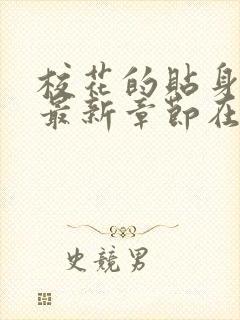 校花的貼身
最新章節在
史競男